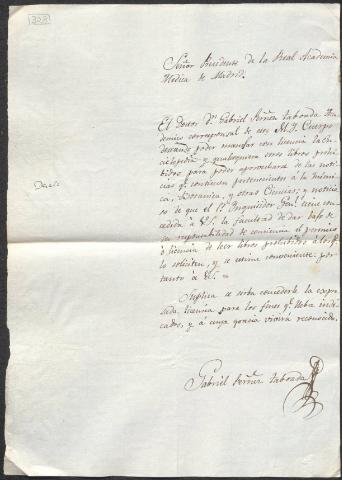 308
Señor Presidente de la Real Academia
Medica de Madrid.
El Doctor Dn. Gabriel Ferñz Taboada Aca-
demico corresponsal de ese M. I. Cuerpo
deseando poder manejar con licencia la En-
ciclopedia y qualesquiera otros libros prohi-
bidos para poder aprovecharse de las noti-
cias qe. contienen pertenecientes á la Medici-
na, Botanica, y otras Ciencias; y noticio-
so de que el Sr. Inquisidor Genl. tiene con-
cedida á V.S. la facultad de dar bajo de
su responsabilidad de conciencia el permiso
ó licencia de leer libros prohibidos á los qe.
lo soliciten, y se estime conveniente: por
tanto á V.S. =
Dese
Suplica se sirva concederle la expre-
sada licencia para los fines qe. lleba indi-
cados, y á cuya gracia vivirá reconocido.
Gabriel Ferñz Taboada